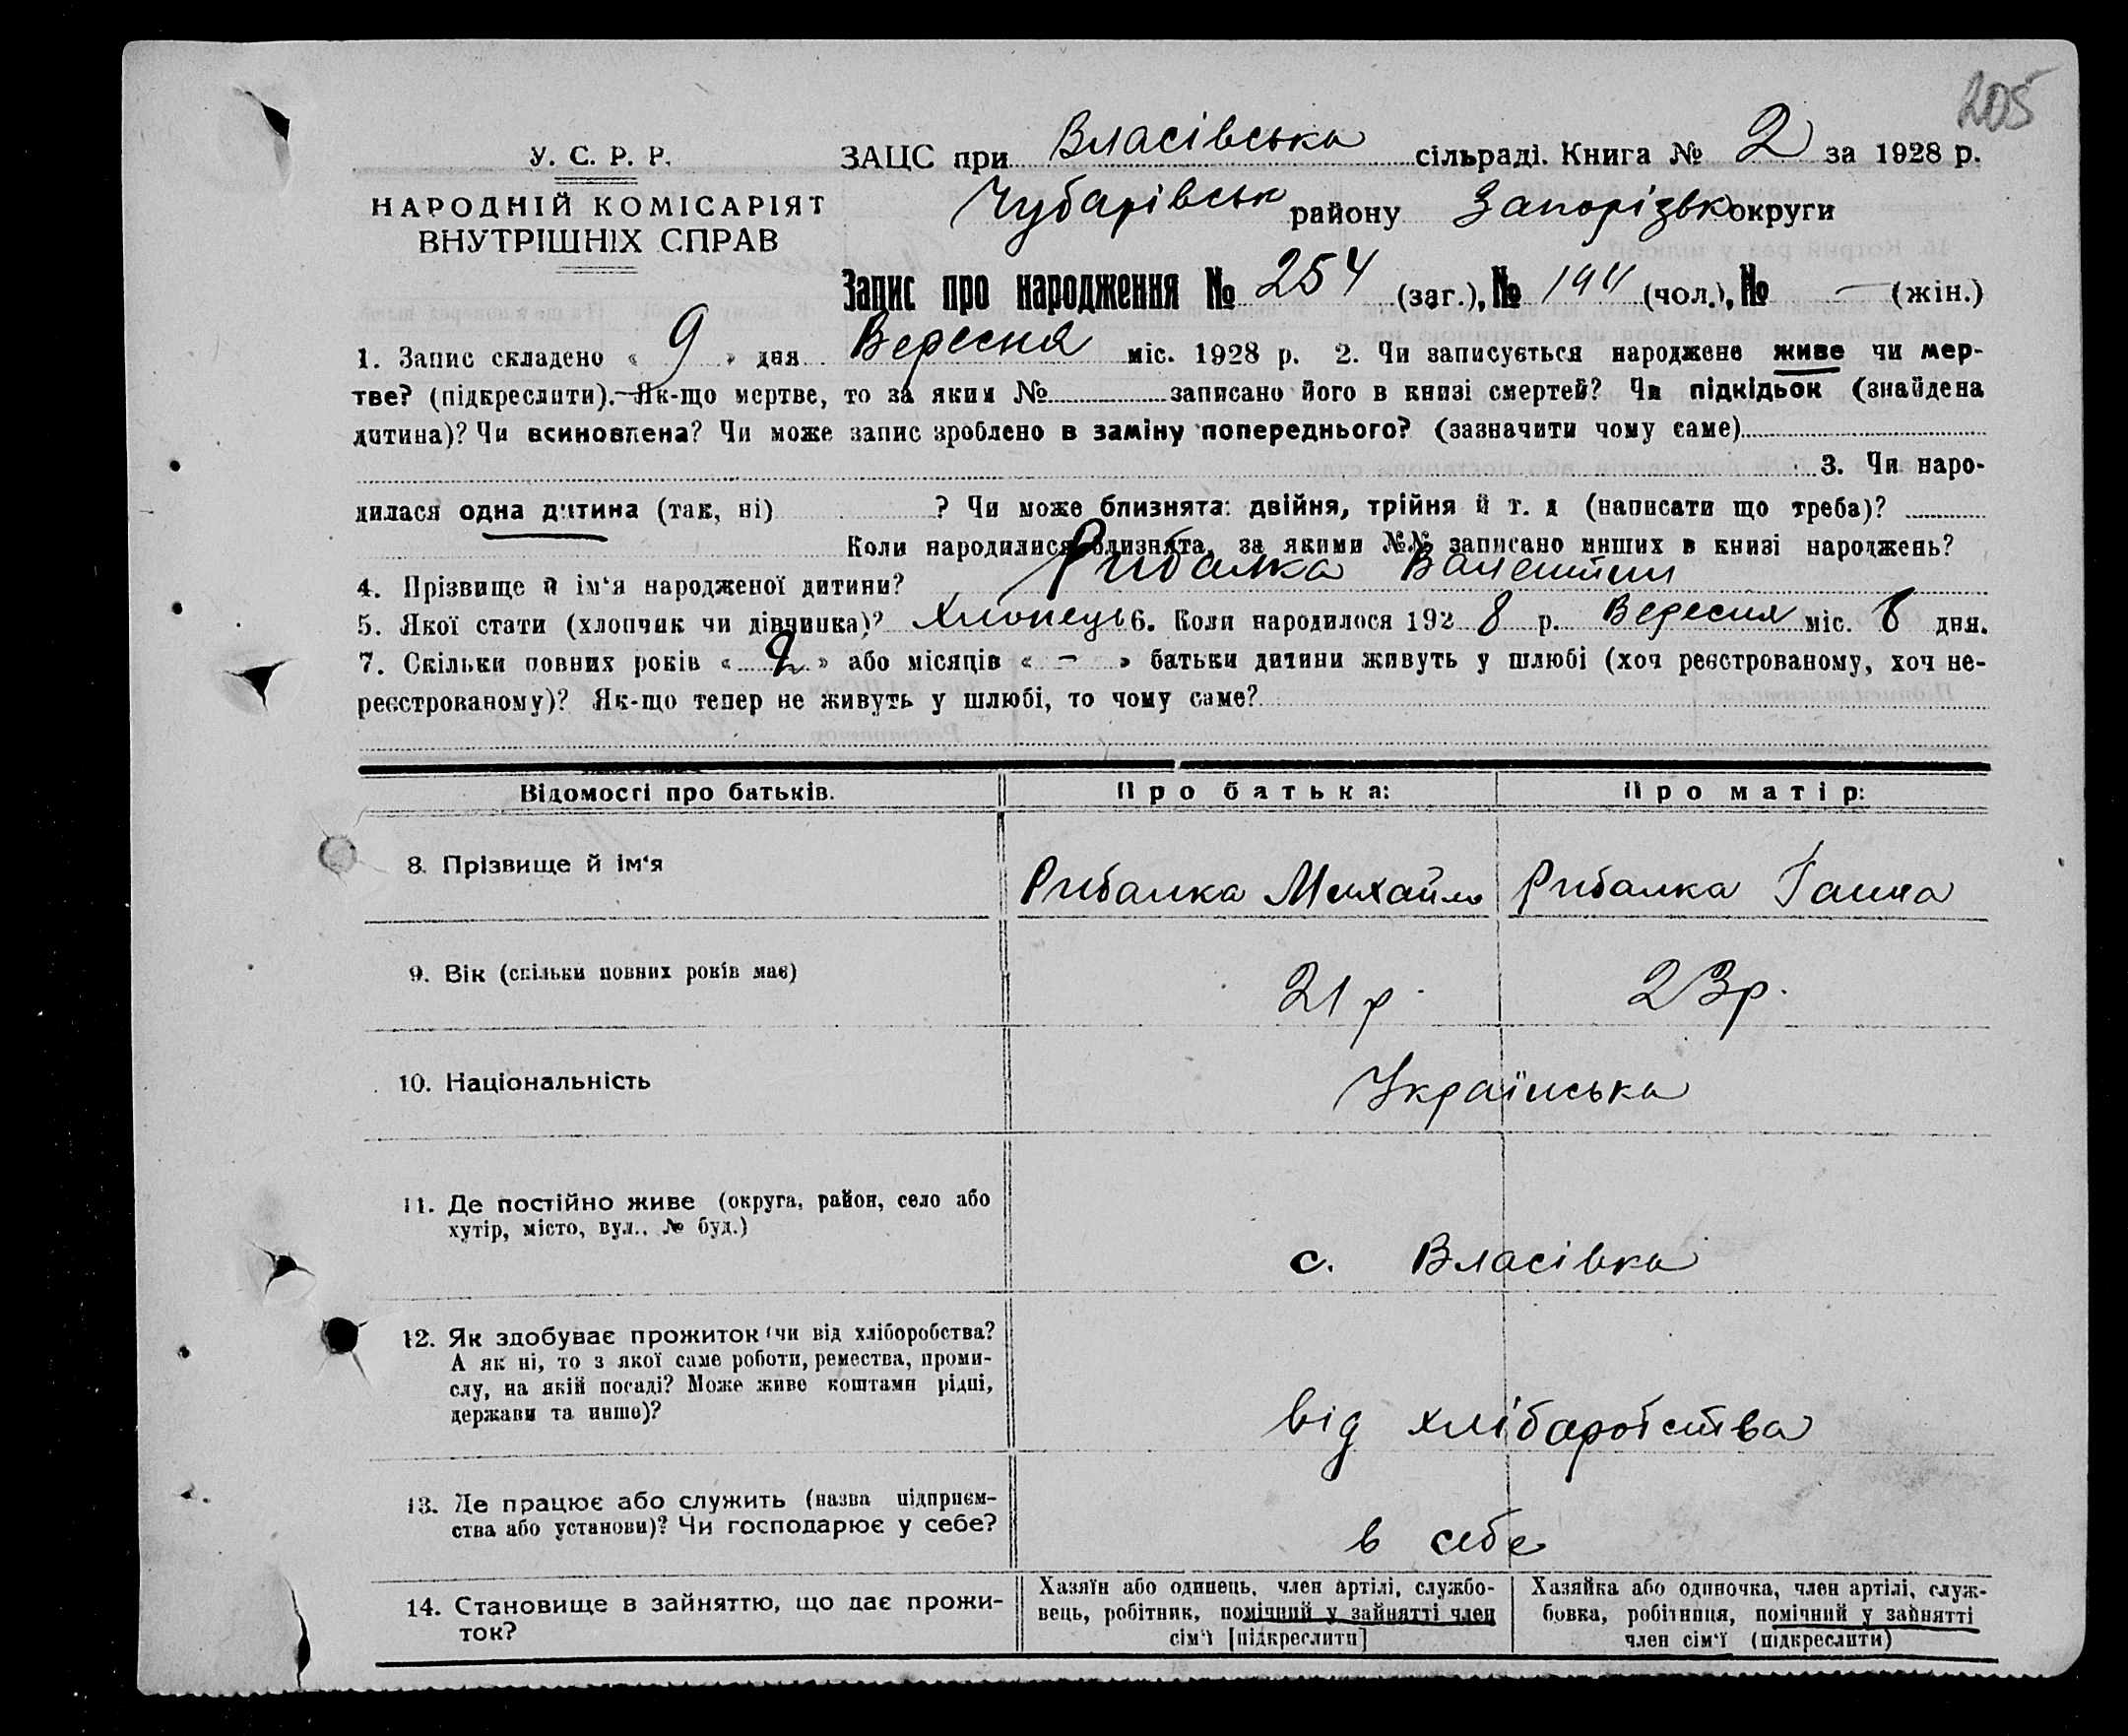 205
У. С. Р. Р.
НАРОДНІЙ КОМІСАРІЯТ
ВНУТРІШНІХ СПРАВ
ЗАЦС при Власівська сільраді. Книга № 2 за 1928 р.
Чубарівськ району Запорізьк округи
Запис про народження № 254 (заг.), № (чол.), № — (жін.)
1. Запис складено « 9 » дня Вересня міс. 1928 р. 2. Чи записується народжене живе чи мер-
тве? (підкреслити).—Як-що мертве, то за яким № записано його в книзі смертей? Чи підкідьок (знайдена
дитина)? Чи всиновлена? Чи може запис зроблено в заміну попереднього? (зазначити чому саме)
3. Чи наро-
дилася одна дитина (так, ні) ? Чи може близнята: двійня, трійня й т. д (написати що треба)?
Коли народилися близнята, за якими №№ записано инших в книзі народжень?
4. Прізвище й ім‘я народженої дитини? Рибалка Валентин
5. Якої стати (хлопчик чи дівчинка)? Хлопець 6. Коли народилося 1928 р. Вересня міс. 8 дня.
7. Скільки повних років « 2 » або місяців « - » батьки дитини живуть у шлюбі (хоч реєстрованому, хоч не-
реєстрованому)? Як-що тепер не живуть у шлюбі, то чому саме?
Відомості про батьків. Про батька: Про матір:
8. Прізвище й ім‘я Рибалка Михайло Рибалка Ганна
9. Вік (скільки повних років має) 21 р. 23 р.
10. Національність Українська
11. Де постійно живе (округа, район, село або
хутір, місто, вул., № буд.)
с. Власівка
12. Як здобуває прожиток (чи від хліборобства?
А як ні, то з якої саме роботи, ремества, проми-
слу, на якій посаді? Може живе коштами рідні,
держави та инше)?
від хлібаробства
13. Де працює або служить (назва підприєм-
ства або установи)? Чи господарює у себе?
в себе
14. Становище в зайняттю, що дає прожи-
ток?
Хазяїн або одинець, член артілі, службо-
вець, робітник, помічний у зайнятті член
сім‘ї [підкреслити]
Хазяйка або одиночка, член артілі, служ-
бовка, робітниця, помічний у зайнятті
член сім‘ї (підкреслити)